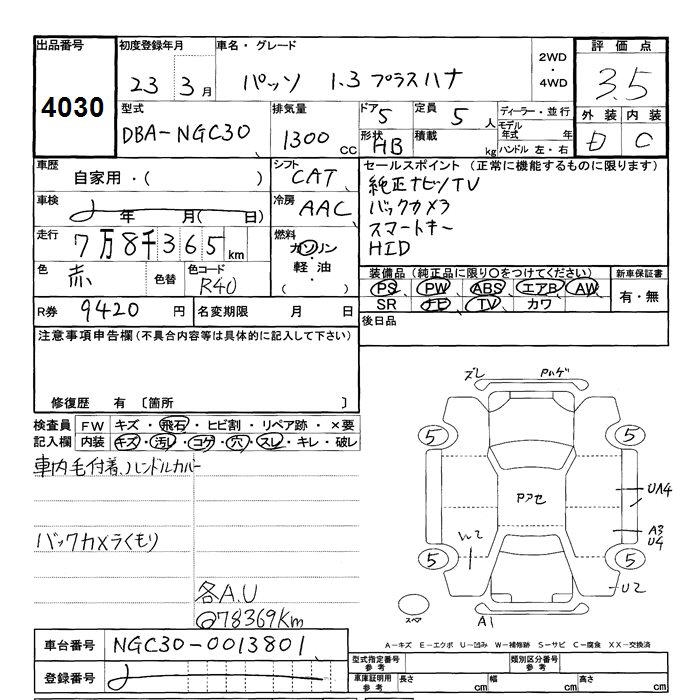 出品番号 4030
初度登録年月 23 3月
車名・グレード パッソ 1.3 プラスハナ
2WD・4WD
評価点 3.5
外装 D 内装 C
型式 DBA-NGC30
排気量 1300cc
ドア 5 形状 HB
定員 5人 積載 kg
ディーラー・並行
モデル年式 年
ハンドル 左・右
車歴 自家用・( )
シフト CAT
車検 年 月( 日)
冷房 AAC
走行 7万8千365km
燃料 ガソリン・軽油・( )
色 赤 色替 色コード R40
R券 9420円 名変期限 月 日
セールスポイント (正常に機能するものに限ります)
純正ナビTV
バックカメラ
スマートキー
HID
装備品 (純正品に限り〇をつけてください) 新車保証書
PS PW ABS エアB AW 有・無
SR ナビ TV カワ
後日品
注意事項申告欄(不具合内容等は具体的に記入して下さい)
修復歴 有 〔箇所 〕
検査員 FW キズ・飛石・ヒビ割・リペア跡・×要
記入欄 内装 キズ・汚レ・コゲ・穴・スレ・キレ・破レ
車内毛付着、ハンドルカバー
バックカメラくもり
各A.U
@78369Km
ズレ Pハゲ
5 5
Pアセ
UA4
A3
U4
W2
5 5
U2
スペア A1
A-キズ E-エクボ U-凹み W-補修跡 S-サビ C-腐食 XX-交換済
車台番号 NGC30-0013801
登録番号
型式指定番号 参考 類別区分番号 参考
車庫証明用 参考 長さ cm 幅 cm 高さ cm